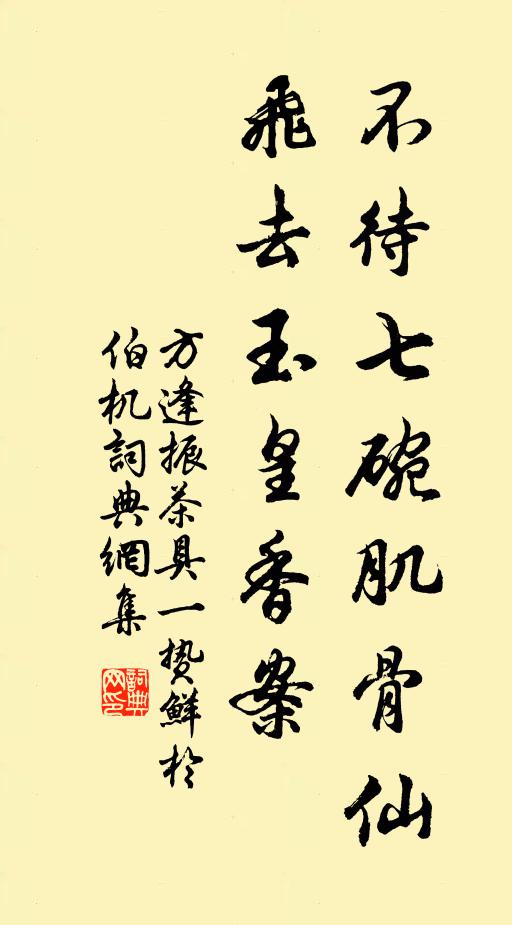 不待七碗肌骨仙
飛去玉皇香案
方逢振茶具一贽鮮於
伯机詞典網集
詞典
网印